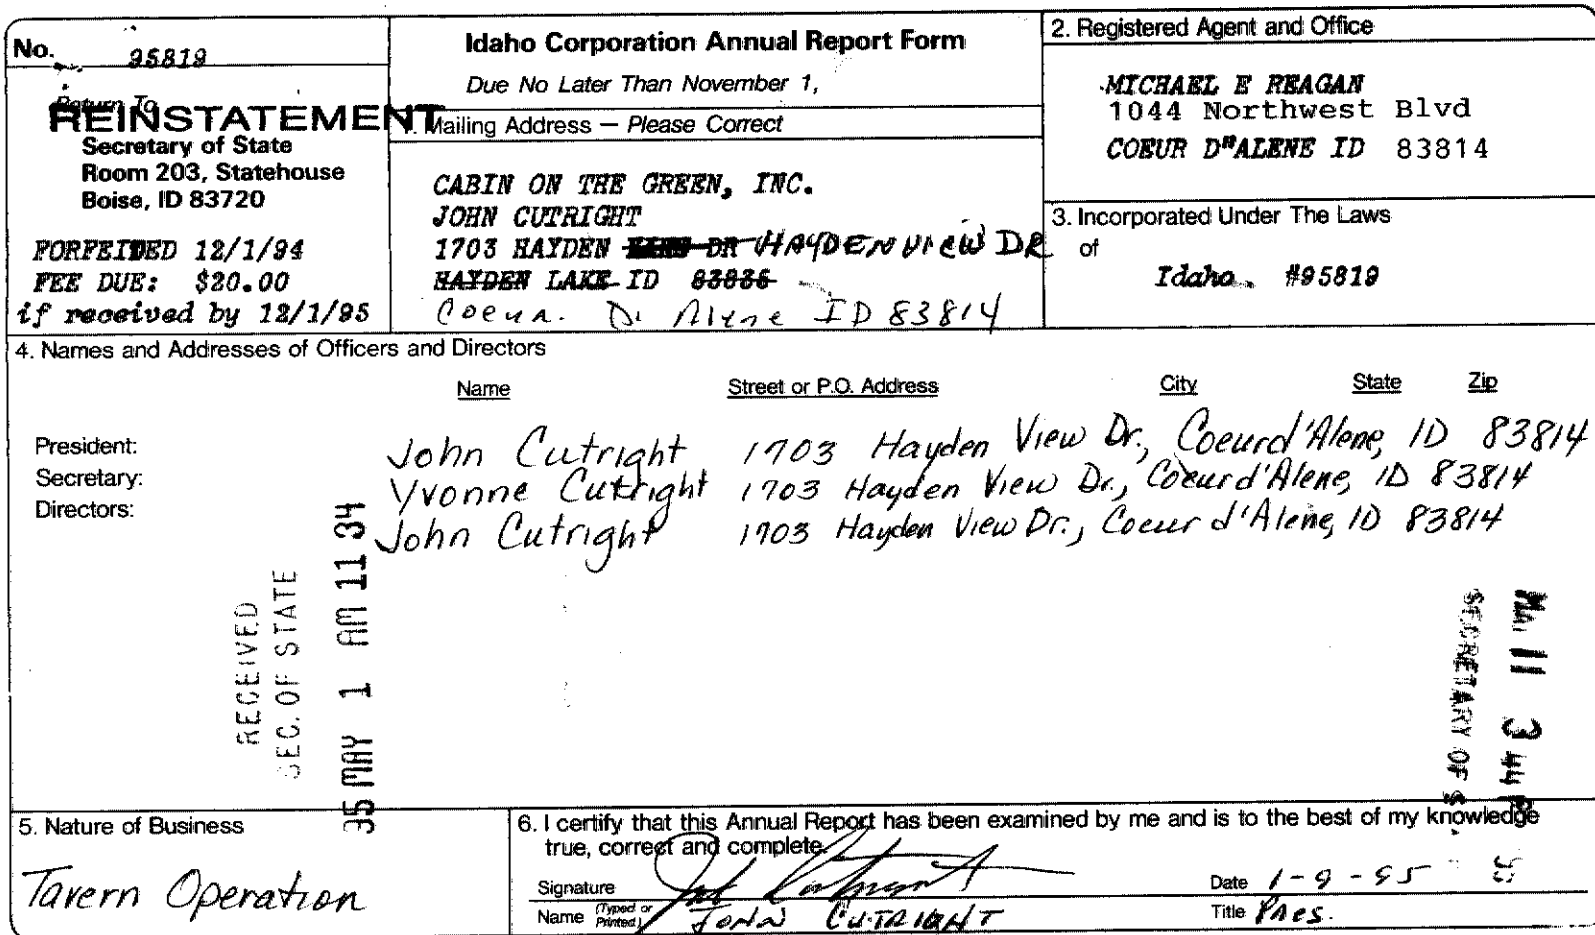 No. 95819
Return To
REINSTATEMENT
Secretary of State
Room 203, Statehouse
Boise, ID 83720
FORFEITED 12/1/94
FEE DUE: $20.00
if received by 12/1/95
Idaho Corporation Annual Report Form
Due No Later Than November 1,
1. Mailing Address — Please Correct
CABIN ON THE GREEN, INC.
JOHN CUTRIGHT
1703 HAYDEN DR HAYDEN VIEW DR
HAYDEN LAKE ID 83835
Coeur D' Alene ID 83814
2. Registered Agent and Office
MICHAEL E REAGAN
1044 Northwest Blvd
COEUR D"ALENE ID 83814
3. Incorporated Under The Laws
of
Idaho #95819
4. Names and Addresses of Officers and Directors
Name Street or P.O. Address City State Zip
President: John Cutright 1703 Hayden View Dr., Coeur d'Alene, ID 83814
Secretary: Yvonne Cutright 1703 Hayden View Dr., Coeur d'Alene, ID 83814
Directors: John Cutright 1703 Hayden View Dr., Coeur d'Alene, ID 83814
RECEIVED
SEC. OF STATE
95 MAY 1 AM 11 34
11 3 44 P
SECRETARY OF S
5. Nature of Business
Tavern Operation
6. I certify that this Annual Report has been examined by me and is to the best of my knowledge
true, correct and complete.
Signature John Cutright Date 1-9-95
Name (Typed or Printed) JOHN CUTRIGHT Title Pres.